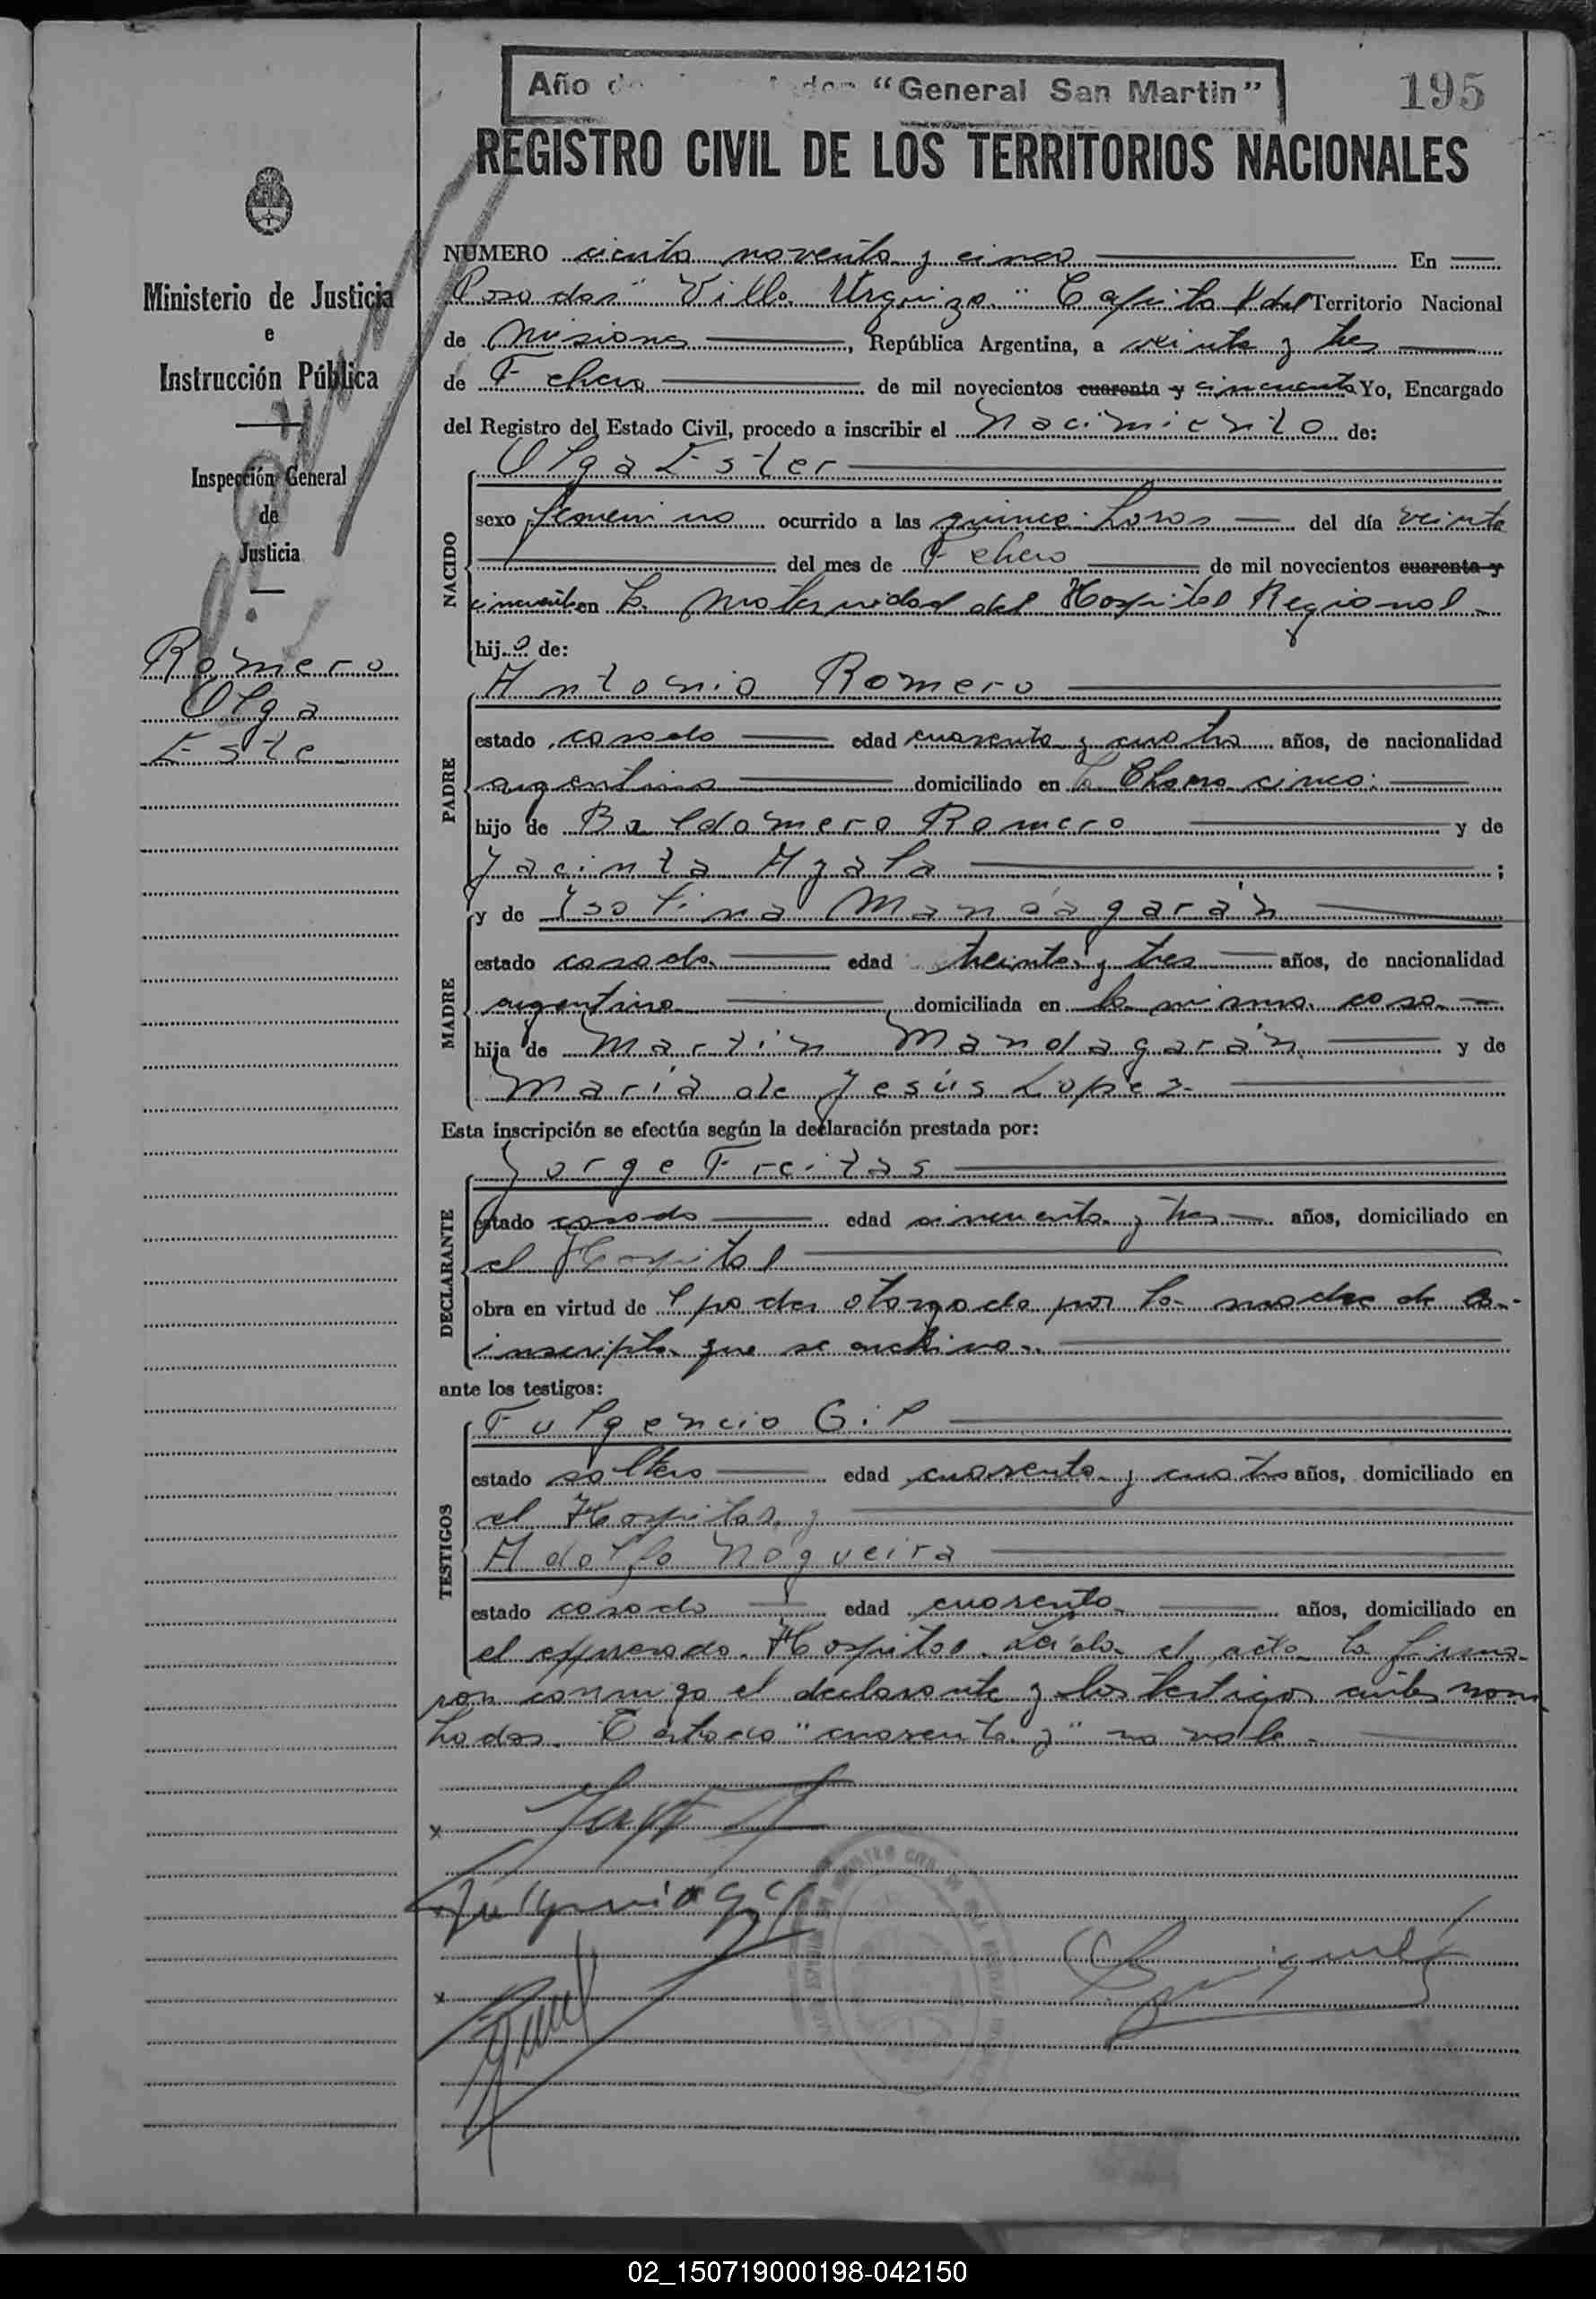 Año de "General San Martin"
195
REGISTRO CIVIL DE LOS TERRITORIOS NACIONALES
Ministerio de Justicia
e
Instrucción Pública
Inspección General
de
Justicia
Romero
Olga
Este
NUMERO ciento noventa y cinco En
Posadas "Villa Urquiza" Capital del Territorio Nacional
de Misiones, República Argentina, a veinte y tres
de Febrero de mil novecientos cuarenta y cincuenta Yo, Encargado
del Registro del Estado Civil, procedo a inscribir el nacimiento de:
NACIDO
Olga Ester
sexo femenino ocurrido a las quince horas del día veinte
del mes de Febrero de mil novecientos cuarenta y
cincuenta en la Maternidad del Hospital Regional
hija de:
PADRE
Antonio Romero
estado casado edad cuarenta y cuatro años, de nacionalidad
argentina domiciliado en la Chacra cinco
hijo de Baldomero Romero y de
Jacinta Ayala ;
MADRE
y de Isolina Mandagarán
estado casada edad treinta y tres años, de nacionalidad
argentina domiciliada en la misma casa
hija de Martín Mandagarán y de
María de Jesús Lopez
Esta inscripción se efectúa según la declaración prestada por:
DECLARANTE
Jorge Freitas
estado casado edad cincuenta y tres años, domiciliado en
el Hospital
obra en virtud de poder otorgado por la madre de la
inscripta que se archiva.
ante los testigos:
TESTIGOS
Fulgencio Gil
estado soltero edad cuarenta y cuatro años, domiciliado en
el Hospital y
Adolfo Nogueira
estado casado edad cuarenta años, domiciliado en
el expresado Hospital. Leída el acta la firma-
ron conmigo el declarante y los testigos nom
brados. Testado "cuarenta y" no vale.
x
Fulgencio Gil
x
02_150719000198-042150